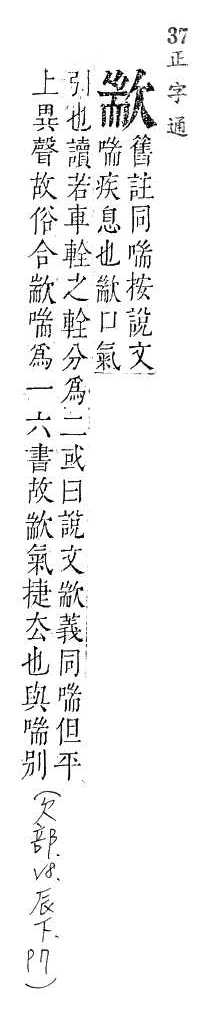 37 正字通
歂 舊註同喘按說文
喘疾息也歂口氣
引也讀若車輇之輇分爲二或曰說文歂義同喘但平
上異聲故俗合歂喘爲一六書故歂氣捷厺也與喘別
(欠部.V8.辰下.P7)